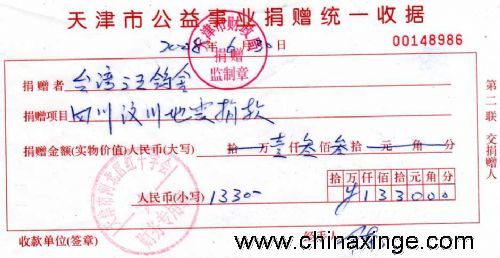 天津市公益事业捐赠统一收据
2008年6月30日
00148986
天津市财政局
捐赠
监制章
捐赠者 台湾汪
捐赠项目 四川汶川地震捐款
捐赠金额(实物价值)人民币(大写) 拾 万 壹 仟 叁 佰 叁 拾 元 角 分
第二联 交捐赠人
拾 万 仟 佰 拾 元 角 分
人民币(小写) 1330- ¥ 1 3 3 0 0 0
红十字会
收款单位(签章) 经手人
www.chinaxinge.com